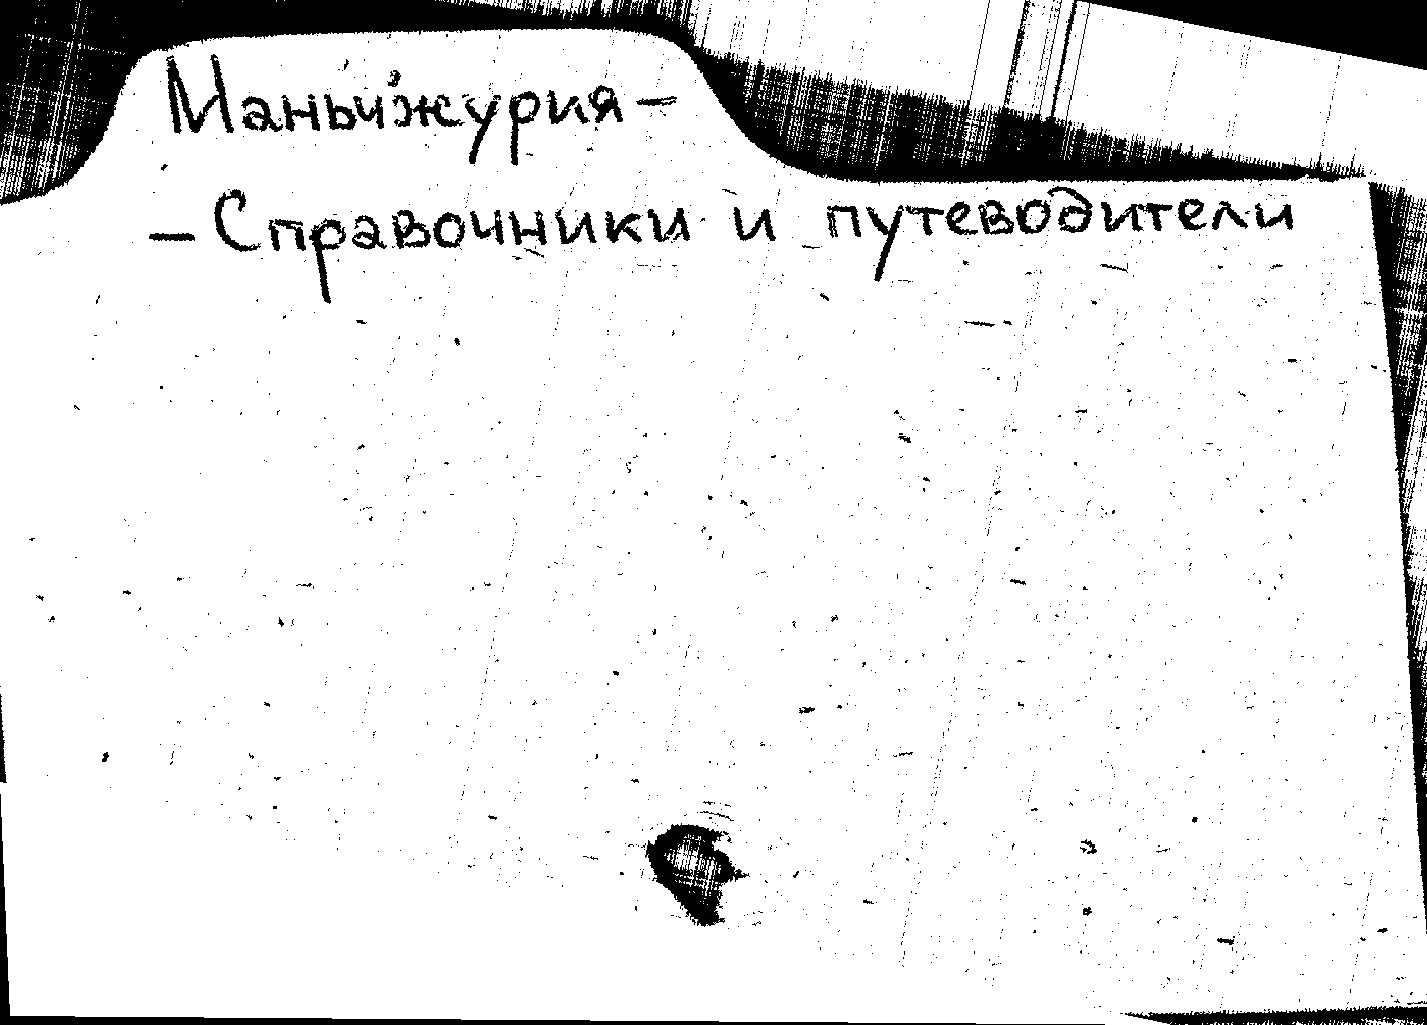 Маньчжурия –
– Справочники и путеводители